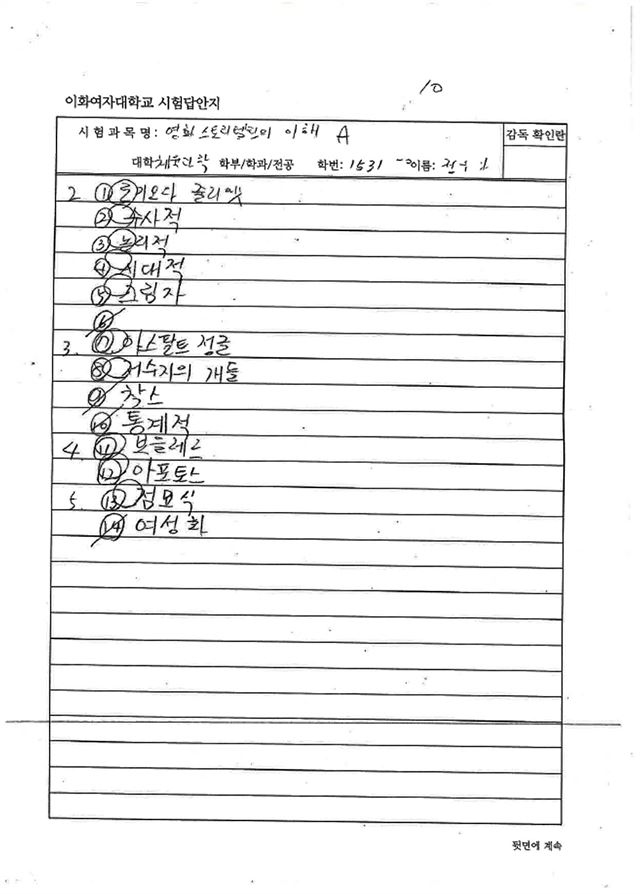 10
이화여자대학교 시험답안지
시험과목명: 영화 스토리텔링의 이해 A 감독 확인란
대학 체육과학 학부/학과/전공 학번: 1531 이름:
2. ① 줄리엣
② 수사적
③ 논리적
④ 시대적
⑤ 그림자
⑥
3. ⑦ 아스팔트 정글
⑧ 저수지의 개들
⑨ 착스
⑩ 통계적
4. ⑪ 브들레르
⑫ 아포토스
5. ⑬ 점묘식
⑭ 여성화
뒷면에 계속